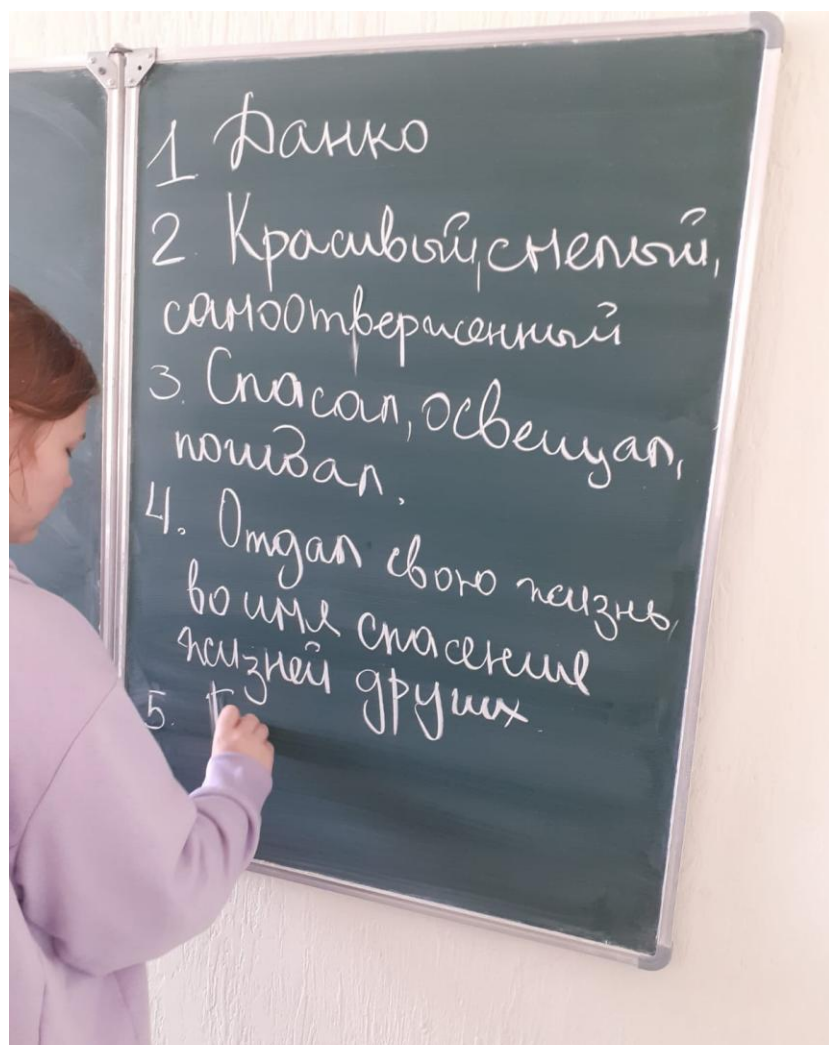 1 Данко
2. Красивый, смелый,
самоотверженный
3. Спасал, освещал,
погибал.
4. Отдал свою жизнь,
во имя спасения
жизней других.
5.